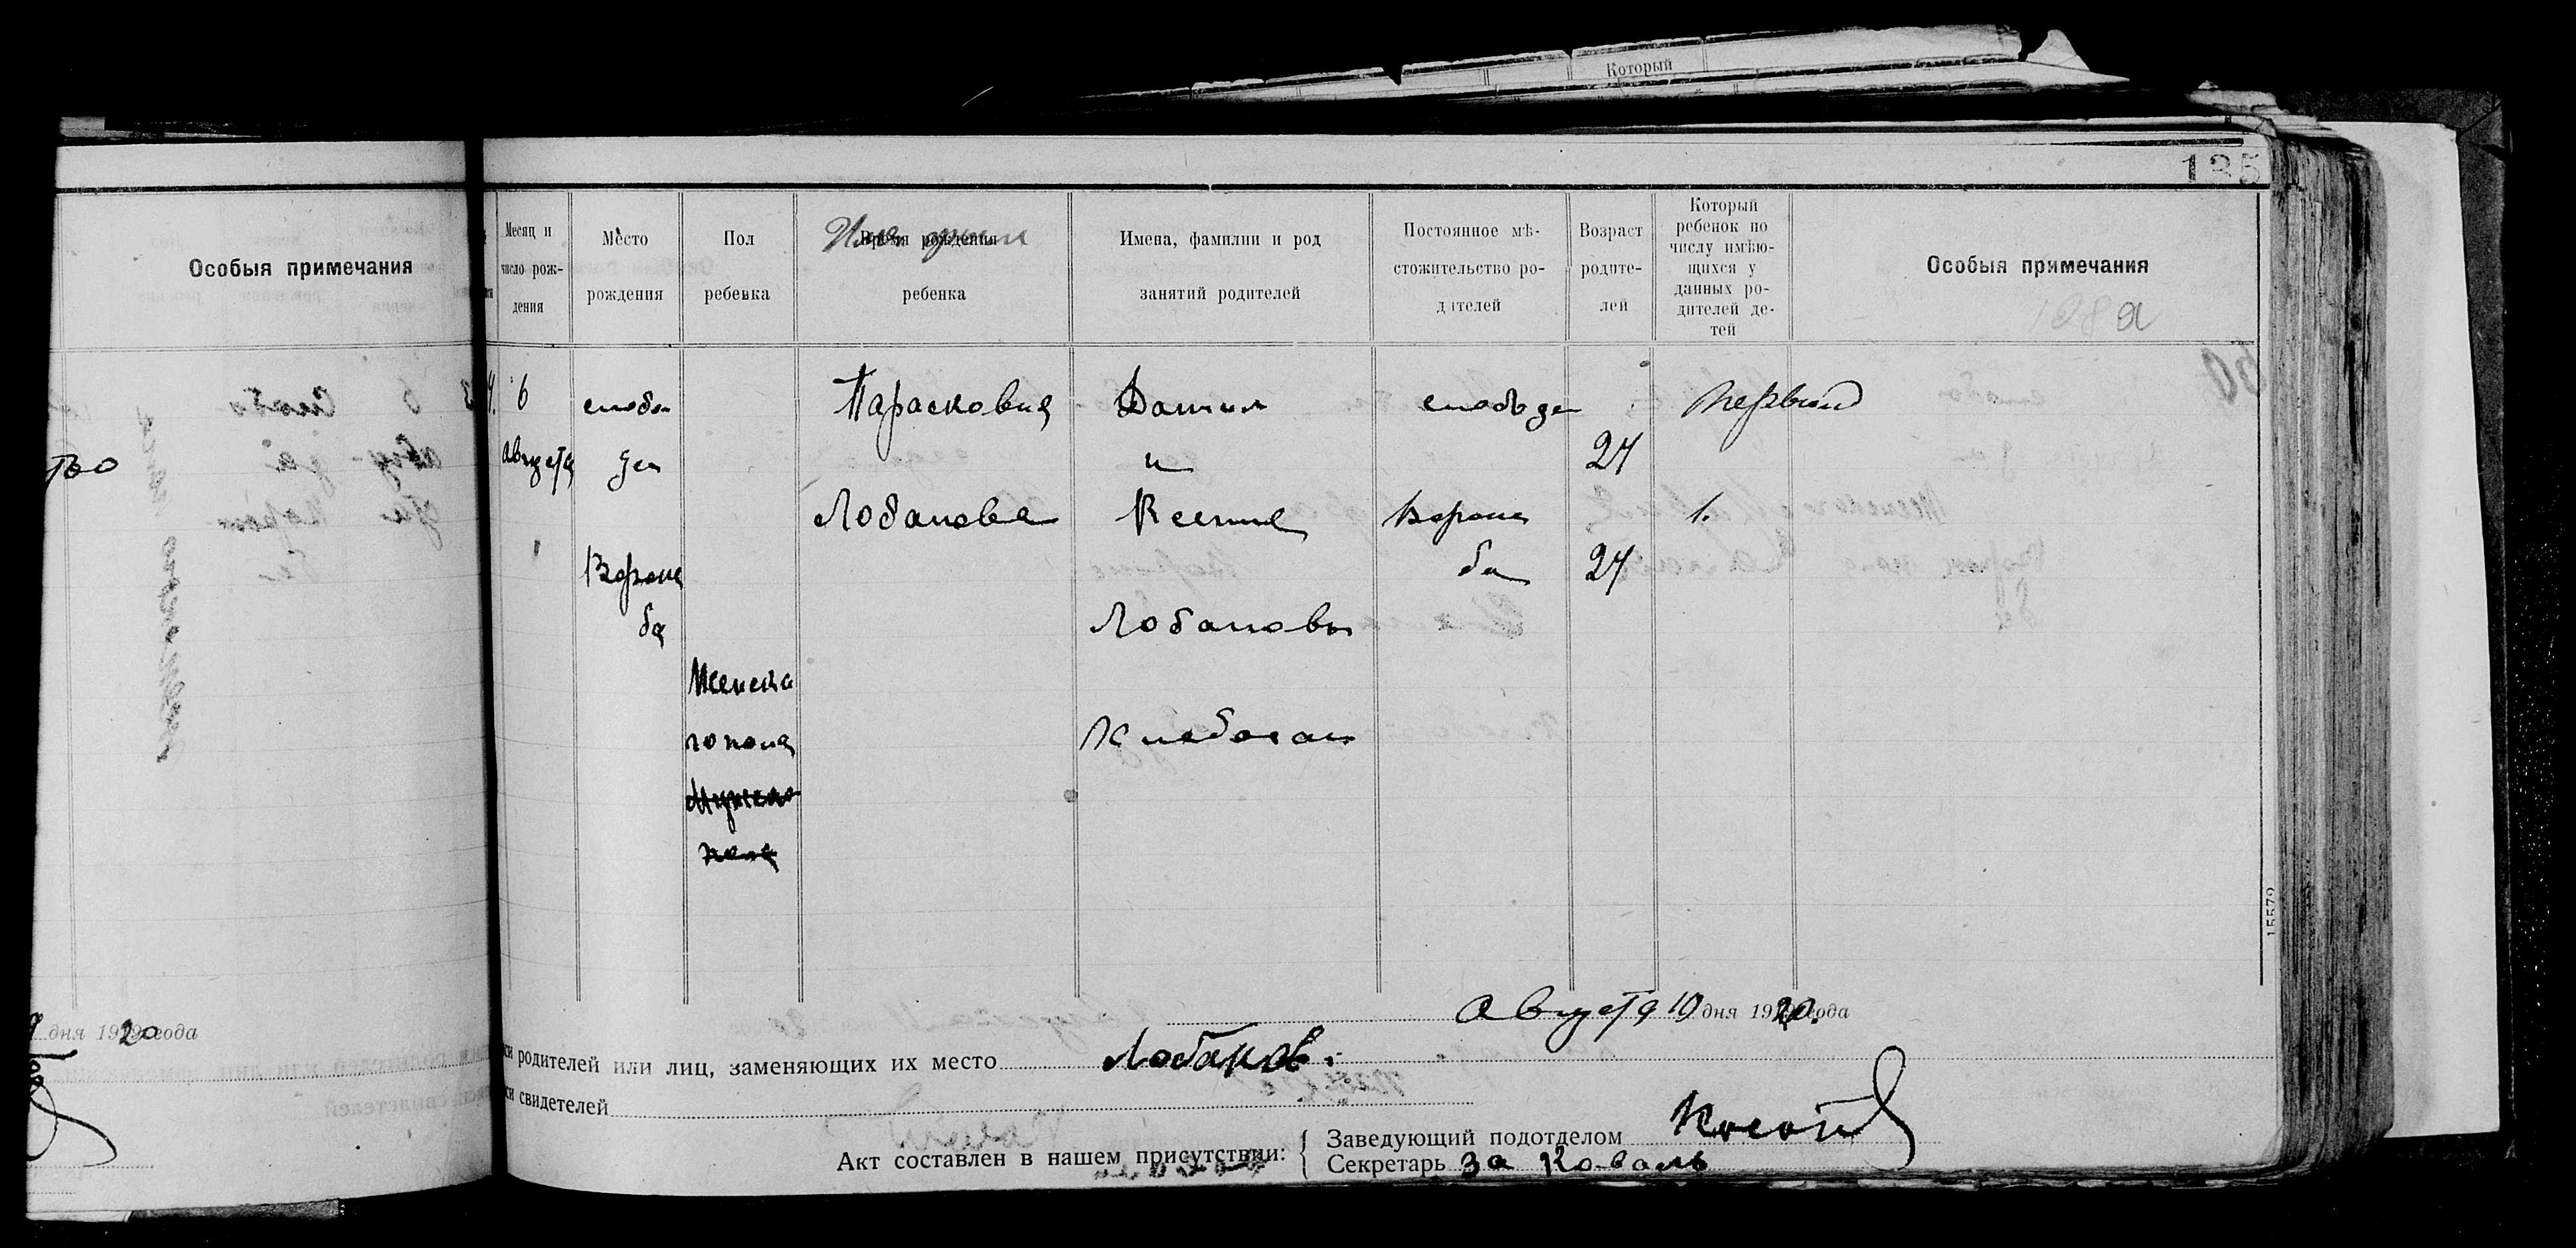 Который
135
Особыя примечания
Месяц и
число рож-
дения
Место
рождения
Пол
ребенка
Время рождения
ребенка
Имена, фамилии и род
занятий родителей
Постоянное мѣ-
стожительство ро-
дителей
Возраст
родите-
лей
Который
ребенок по
числу имѣю-
щихся у
данных ро-
дителей де-
тей
Особыя примечания
6
августа
слобо
да
Вороне
ба
Женска
го пола
Мужско
пола
Парасковия
Лобанова
Данил
и
Ксения
Лобановы
Хлебопаш
слобода
Вороне
ба
24
24
Первый
1.
дня 1920 года
августа 10 дня 1920 года
родителей или лиц, заменяющих их место Лобанов.
свидетелей
Акт составлен в нашем присутствии:
Заведующий подотделом
Секретарь за Коваль
15579